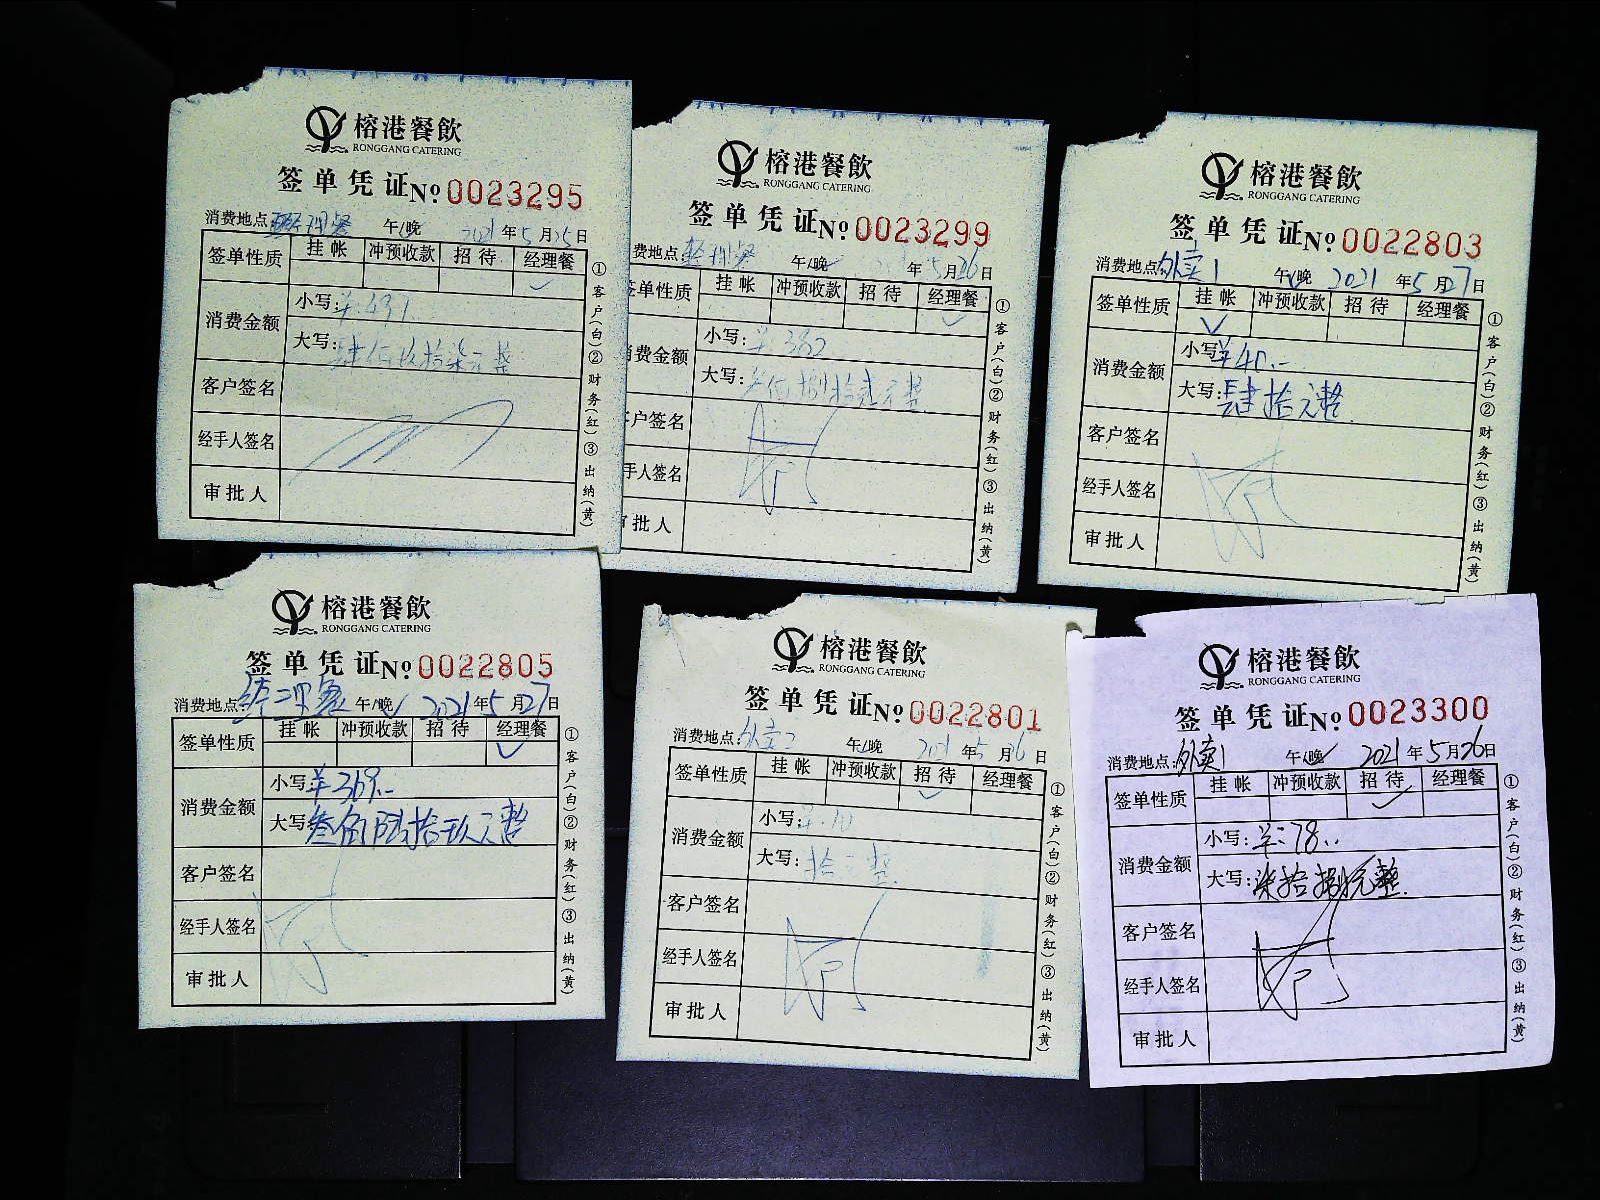 榕港餐飲
RONGGANG CATERING
签单凭证 No 0023295
消费地点: 经理餐 午/晚 2021年5月25日
签单性质 挂帐 冲预收款 招待 经理餐
✓
消费金额 小写:
大写: 肆佰玖拾柒元整
客户签名
经手人签名
审批人
①客户(白)②财务(红)③出纳(黄)
榕港餐飲
RONGGANG CATERING
签单凭证 No 0023299
费地点: 经理餐 午/晚 年5月26日
签单性质 挂帐 冲预收款 招待 经理餐
✓
消费金额 小写: ¥:382
大写: 叁佰捌拾贰元整
户签名
手人签名
审批人
①客户(白)②财务(红)③出纳(黄)
榕港餐飲
RONGGANG CATERING
签单凭证 No 0022803
消费地点: 外卖1 午/晚 2021年5月27日
签单性质 挂帐 冲预收款 招待 经理餐
✓
消费金额 小写: ¥40.-
大写: 肆拾元整
客户签名
经手人签名
审批人
①客户(白)②财务(红)③出纳(黄)
榕港餐飲
RONGGANG CATERING
签单凭证 No 0022805
消费地点: 经理餐 午/晚 ✓ 2021年5月27日
签单性质 挂帐 冲预收款 招待 经理餐
✓
消费金额 小写: ¥369.-
大写: 叁佰陆拾玖元整
客户签名
经手人签名
审批人
①客户(白)②财务(红)③出纳(黄)
榕港餐飲
RONGGANG CATERING
签单凭证 No 0022801
消费地点: 外卖2 午/晚 2021年5月26日
签单性质 挂帐 冲预收款 招待 经理餐
✓
消费金额 小写: ¥:10
大写: 拾元整
客户签名
经手人签名
审批人
①客户(白)②财务(红)③出纳(黄)
榕港餐飲
RONGGANG CATERING
签单凭证 No 0023300
消费地点: 外卖1 午/晚 ✓ 2021年5月26日
签单性质 挂帐 冲预收款 招待 经理餐
✓
消费金额 小写: ¥:78..
大写: 柒拾捌元整
客户签名
经手人签名
审批人
①客户(白)②财务(红)③出纳(黄)